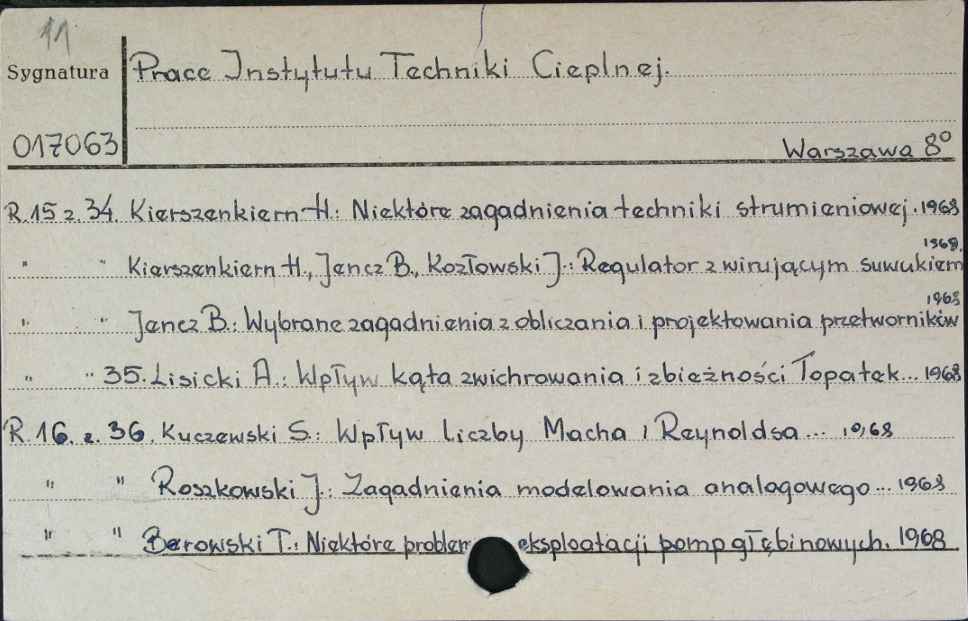 11
Sygnatura
Prace Instytutu Techniki Cieplnej.
017063
Warszawa 8°
R.15 z. 34. Kierszenkiern H.: Niektóre zagadnienia techniki strumieniowej. 1968
" " Kierszenkiern H., Jencz B., Kozłowski J.: Regulator z wirującym suwukiem 1968.
" " Jencz B.: Wybrane zagadnienia z obliczania i projektowania przetworników 1968
" " 35. Lisicki A.: Wpływ kąta zwichrowania i zbieżności Łopatek... 1968
R.16. z. 36. Kuczewski S.: Wpływ liczby Macha i Reynoldsa... 1968
" " Roszkowski J.: Zagadnienia modelowania analogowego... 1968
" " Berowski T.: Niektóre eksploatacji pomp głębinowych. 1968